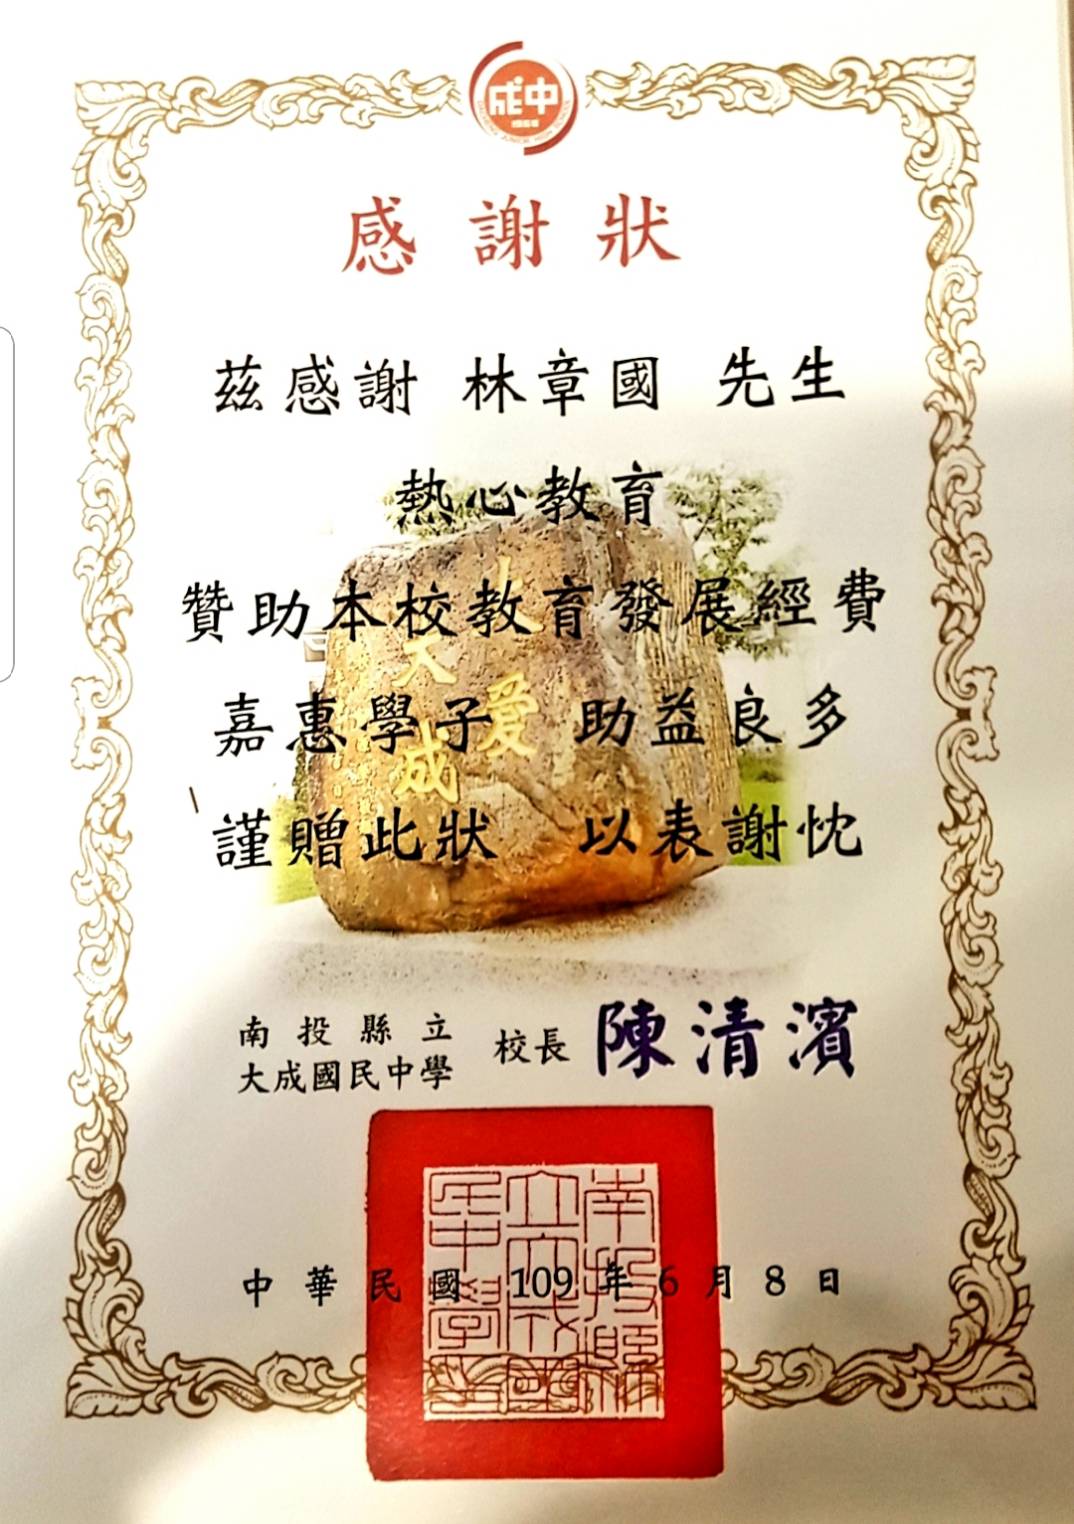 成中
感謝狀
茲感謝 林章國 先生
熱心教育
贊助本校教育發展經費
嘉惠學子 助益良多
謹贈此狀 以表謝忱
大愛
大成
南投縣立
大成國民中學
校長 陳清濱
南投縣
立大成國
民中學
中華民國 109 年 6 月 8 日